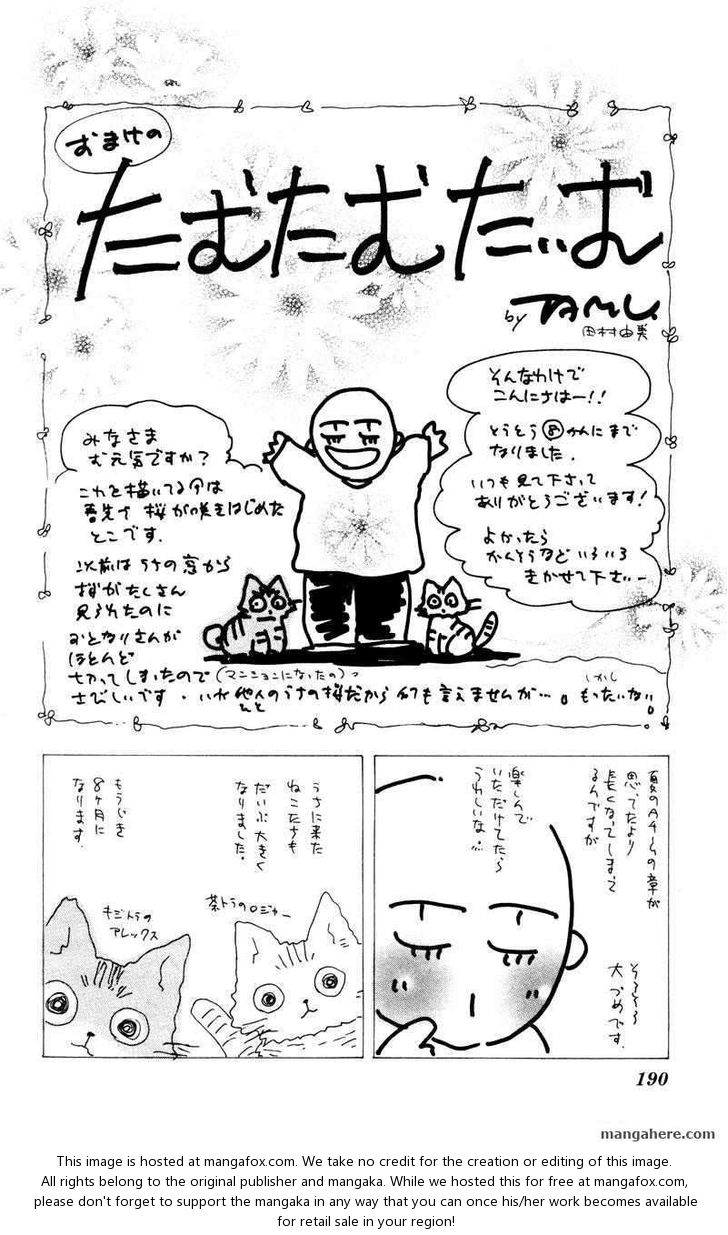 おまけの
たむたむたいむ
by TAMU
田村由美
そんなわけで
こんにちはー!!
とうとう⑧かんにまで
なりました.
いつも見て下さって
ありがとうございます!
よかったら
かんそうなどいろいろ
きかせて下さいー
みなさま
お元気ですか?
これを描いてる今は
春先で 桜が咲きはじめた
とこです.
以前はうちの窓から
桜がたくさん
見られたのに
おとなりさんが
ほとんど
きってしまったので(マンションになったの)っ
さびしいです.いや他人のうちの桜だから何も言えませんが…。しかしもったいない。
夏のAチームの章が
思ってたより
長くなってしまって
るんですが
楽しんで
いただけてたら
うれしいな…
そろそろ
大づめです.
うちに来た
ねこたちも
だいぶ大きく
なりました.
もうじき
8ヶ月に
なります.
茶トラのロジャー
キジトラの
アレックス
190
mangahere.com
This image is hosted at mangafox.com. We take no credit for the creation or editing of this image.
All rights belong to the original publisher and mangaka. While we hosted this for free at mangafox.com,
please don't forget to support the mangaka in any way that you can once his/her work becomes available
for retail sale in your region!